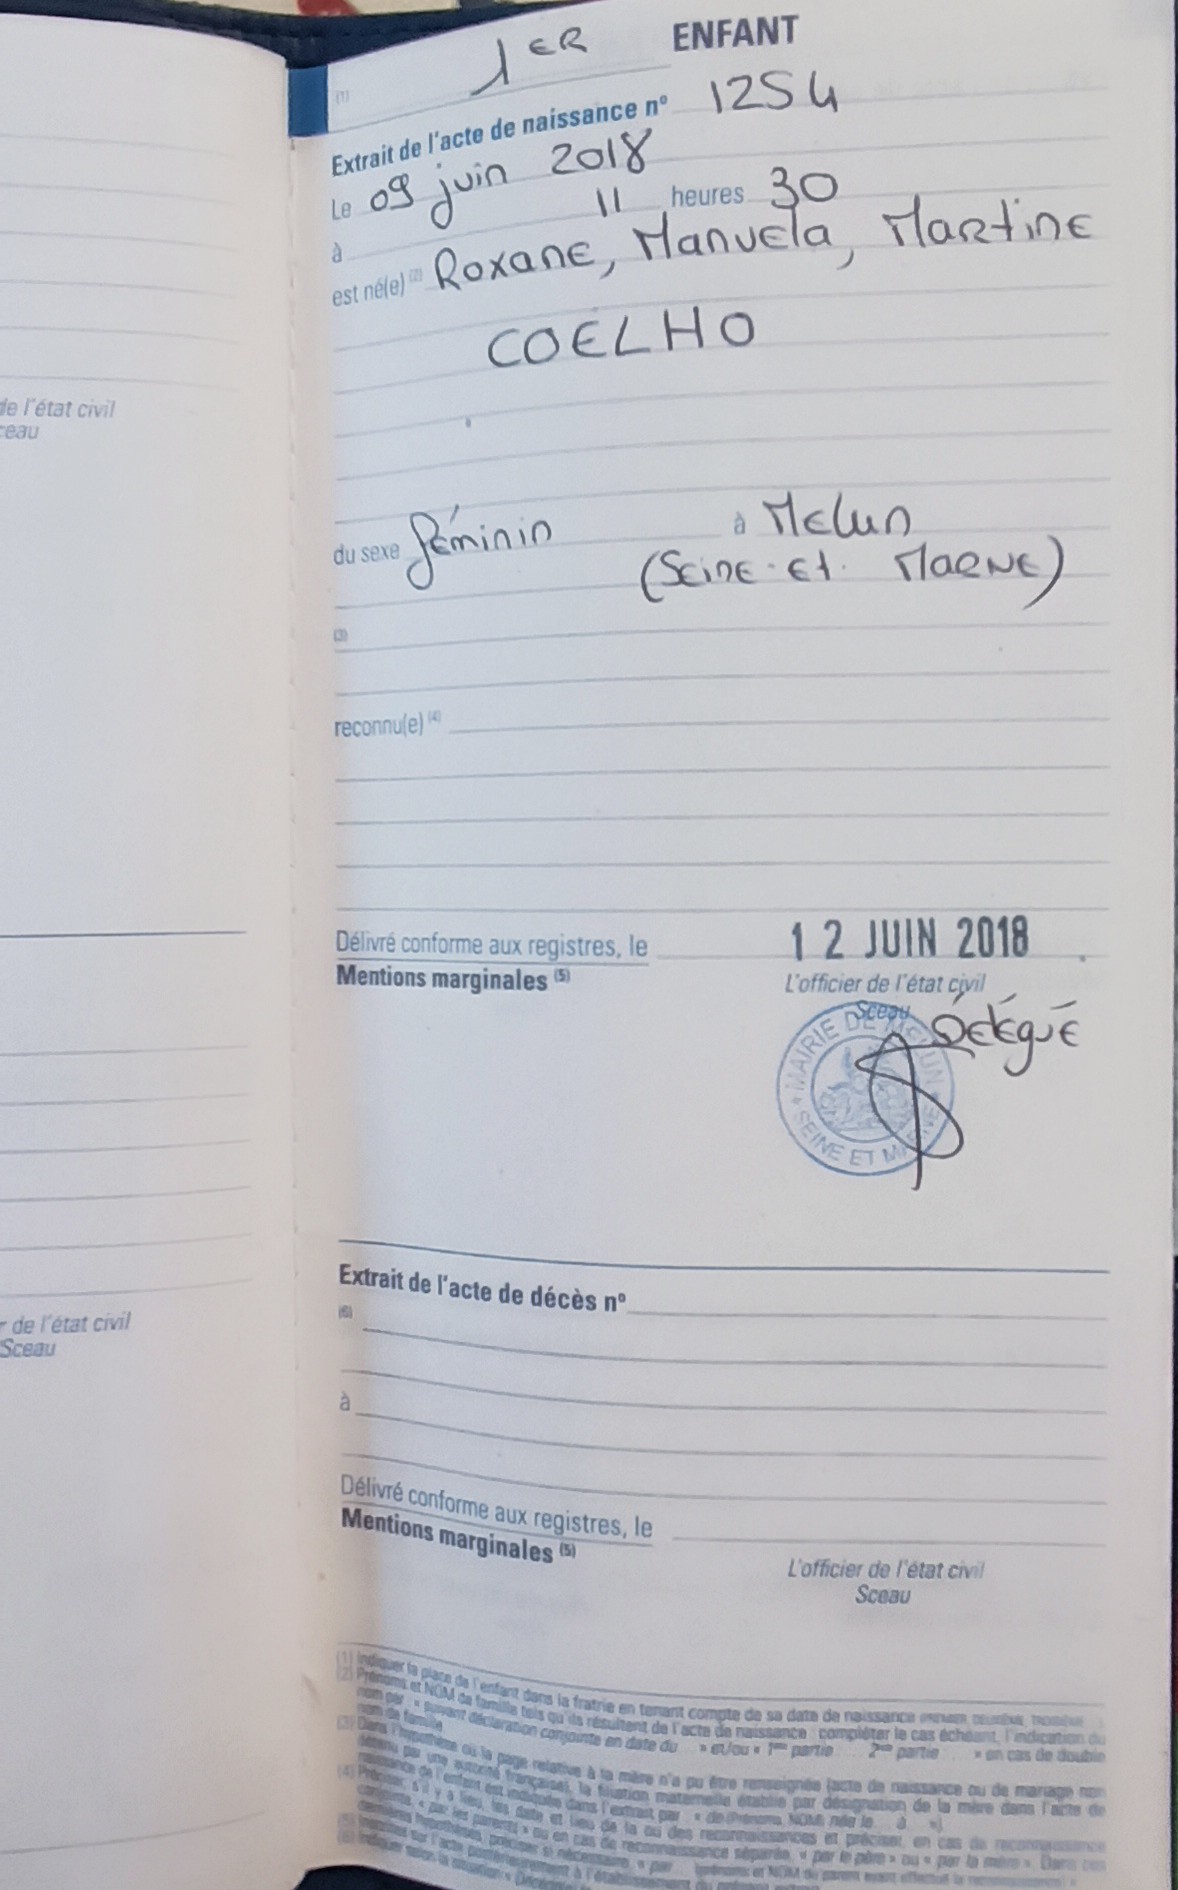 de l'état civil
ceau
r de l'état civil
Sceau
(1) 1ER ENFANT
Extrait de l'acte de naissance nº 1254
Le 09 juin 2018
à 11 heures 30
est né(e) (2) Roxane, Manuela, Martine
COELHO
du sexe féminin à Melun
(Seine-et-Marne)
(3)
reconnu(e) (4)
Délivré conforme aux registres, le 12 JUIN 2018
Mentions marginales (5)
L'officier de l'état civil
Sceau Délégué
MAIRIE DE MELUN
SEINE ET MARNE
Extrait de l'acte de décès nº
(6)
à
Délivré conforme aux registres, le
Mentions marginales (5)
L'officier de l'état civil
Sceau
(1) Indiquer la place de l'enfant dans la fratrie en tenant compte de sa date de naissance
(2) Prénoms et NOM de famille tels qu'ils résultent de l'acte de naissance : compléter le cas échéant, l'indication du
nom par : « suivant déclaration conjointe en date du ... » et/ou « 1re partie ... 2me partie ... » en cas de double
nom de famille.
(3) Dans l'hypothèse où la page relative à la mère n'a pu être renseignée (acte de naissance ou de mariage non
détenu par une autorité française), la filiation maternelle établie par désignation de la mère dans l'acte de
naissance de l'enfant est indiquée dans l'extrait par : « de (Prénoms, NOM) née le ... à ... »).
(4) Préciser, s'il y a lieu, les date et lieu de la ou des reconnaissances et préciser, en cas de reconnaissance
conjointe, « par les parents » ou en cas de reconnaissance séparée, « par le père » ou « par la mère ». Dans ces